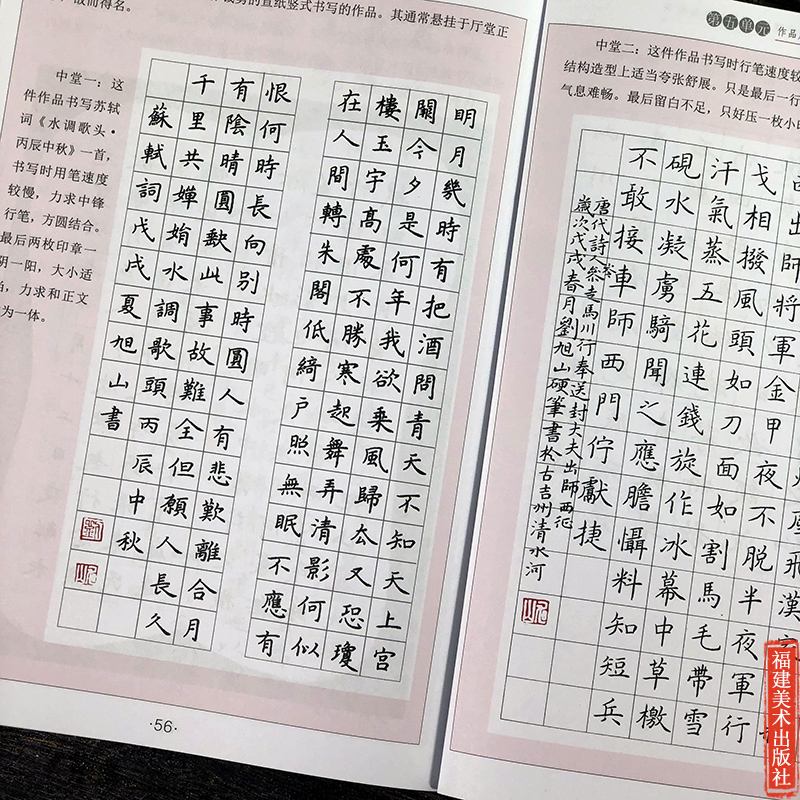 故而得名。
的宣纸竖式书写的作品。其通常悬挂于厅堂正
中堂一：这
件作品书写苏轼
词《水调歌头·
丙辰中秋》一首，
书写时用笔速度
较慢，力求中锋
行笔，方圆结合。
最后两枚印章一
阴一阳，大小适
，力求和正文
为一体。
明月幾時有把酒問青天不知天上宮
闕今夕是何年我欲乘風歸去又恐瓊
樓玉宇高處不勝寒起舞弄清影何似
在人間轉朱閣低綺户照無眠不應有
恨何時長向别時圓人有悲歡離合月
有陰晴圓缺此事故難全但願人長久
千里共嬋娟水調歌頭丙辰中秋
蘇軾詞戊戌夏旭山書
·56·
第五单元
作品
中堂二：这件作品书写时行笔速度较
结构造型上适当夸张舒展。只是最后一行
气息难畅。最后留白不足，只好压一枚小印
飛漢
出師將軍金甲夜不脫半夜軍行
戈相撥風頭如刀面如割馬毛帶雪
汗氣蒸五花連錢旋作冰幕中草檄
硯水凝虜騎聞之應膽懾料知短兵
不敢接車師西門佇獻捷
唐代詩人岑参走馬川行奉送封大夫出師西征
歲次戊戌春月劉旭山硬筆書於古吉州清水河
福建美术出版社